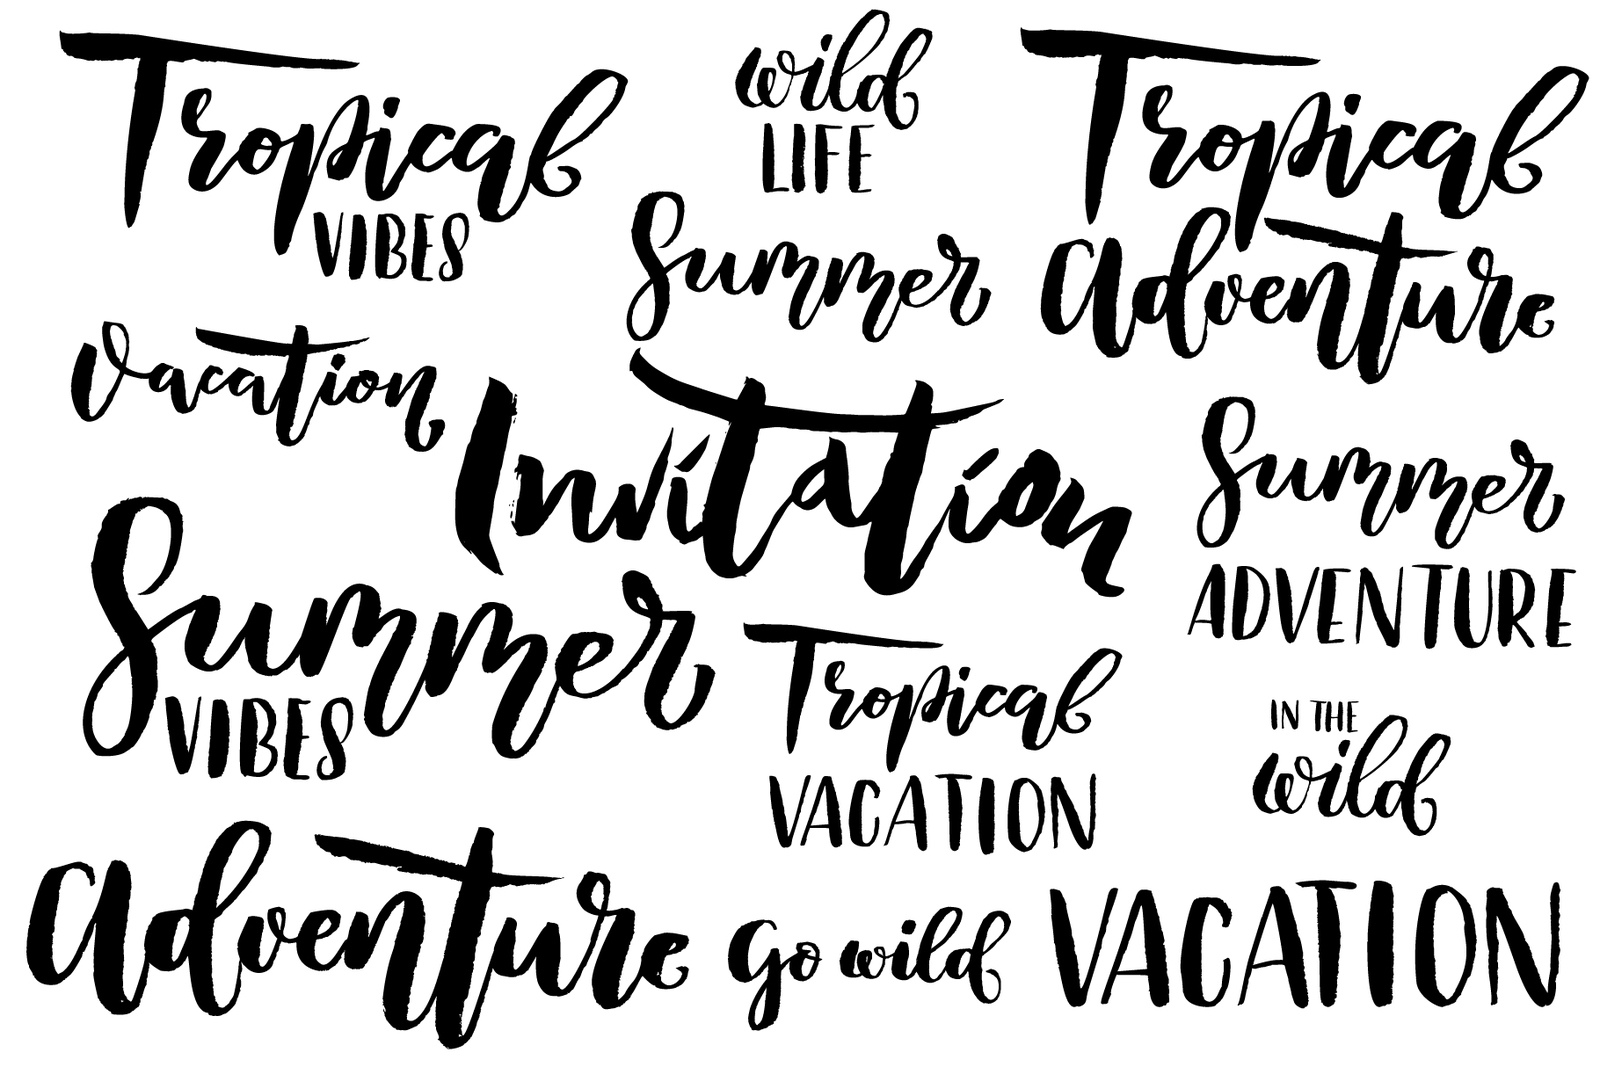 Tropical
VIBES
wild
LIFE
Tropical
Adventure
Summer
Vacation
Invitation
Summer
ADVENTURE
Summer
VIBES
Tropical
VACATION
IN THE
wild
Adventure
Go wild
VACATION